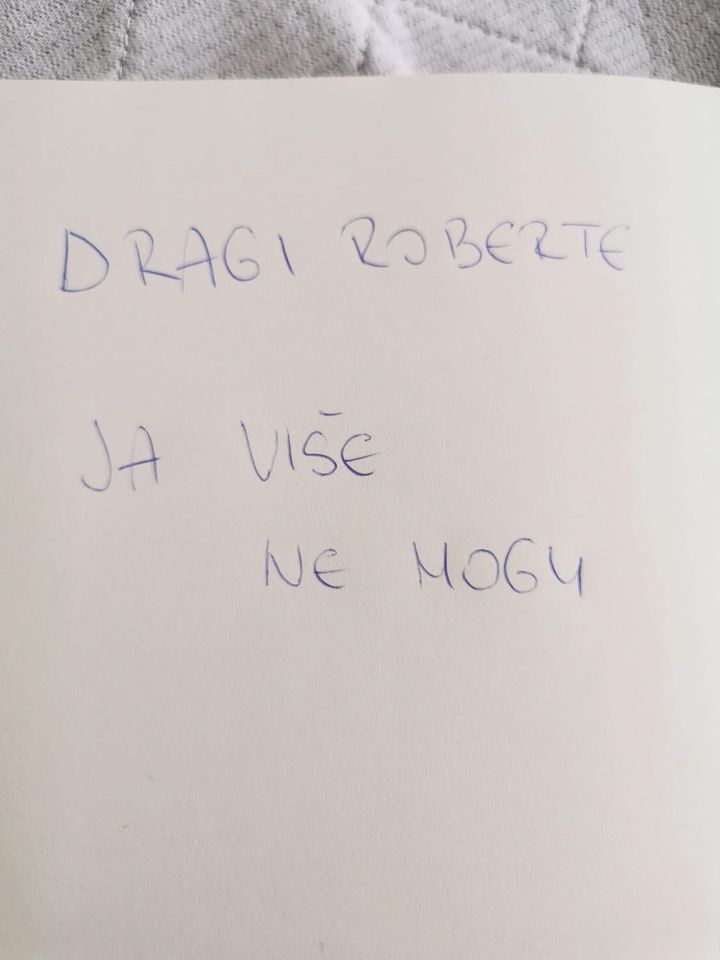 DRAGI ROBERTE
JA VIŠE
NE MOGU